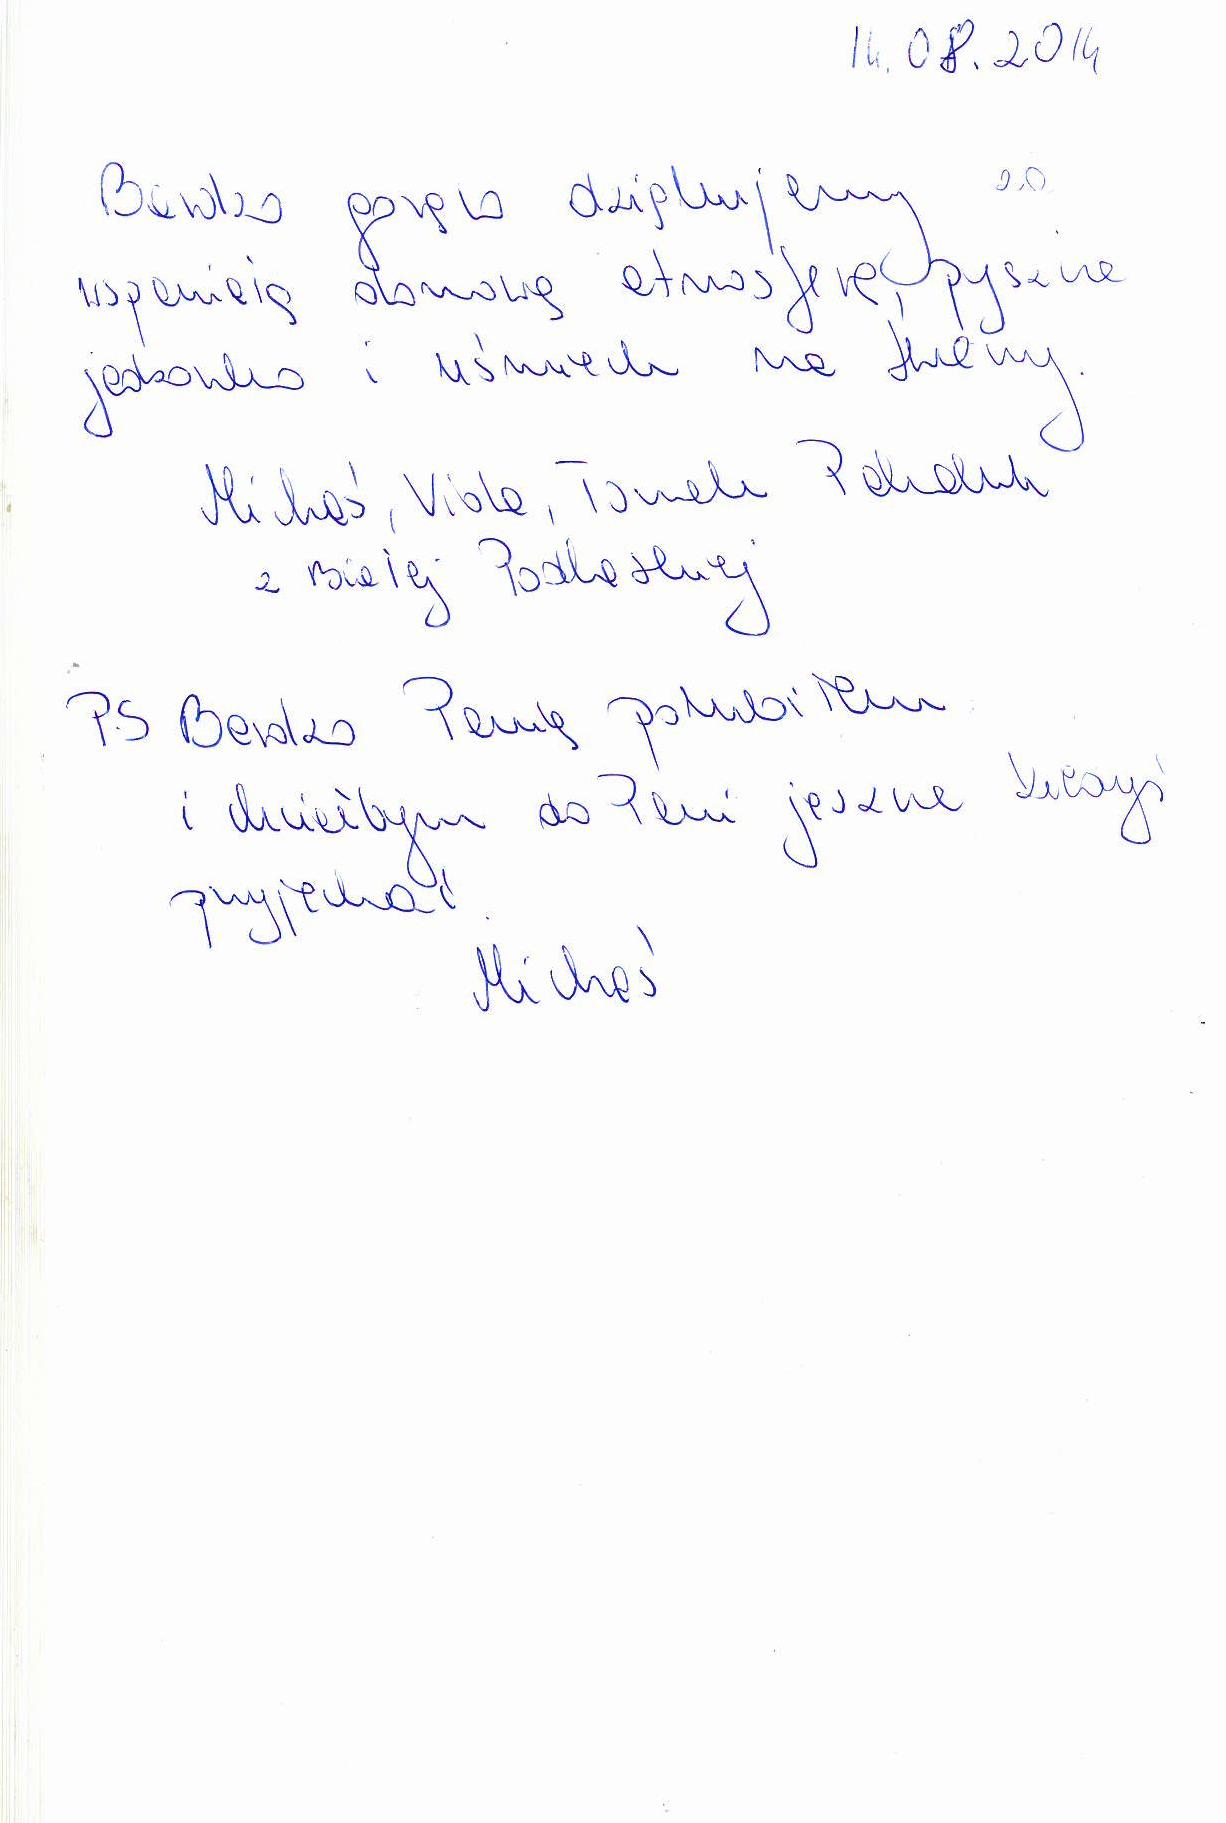 14.08.2014
Bardzo gorąco dziękujemy za
wspaniałą domową atmosferę, pyszne
jedzonko i uśmiech na
Michaś, Viola, Tomek
z Białej Podlaskiej
PS Bardzo Panią polubiłem
i chciałbym do Pani jeszcze kiedyś
przyjechać.
Michaś